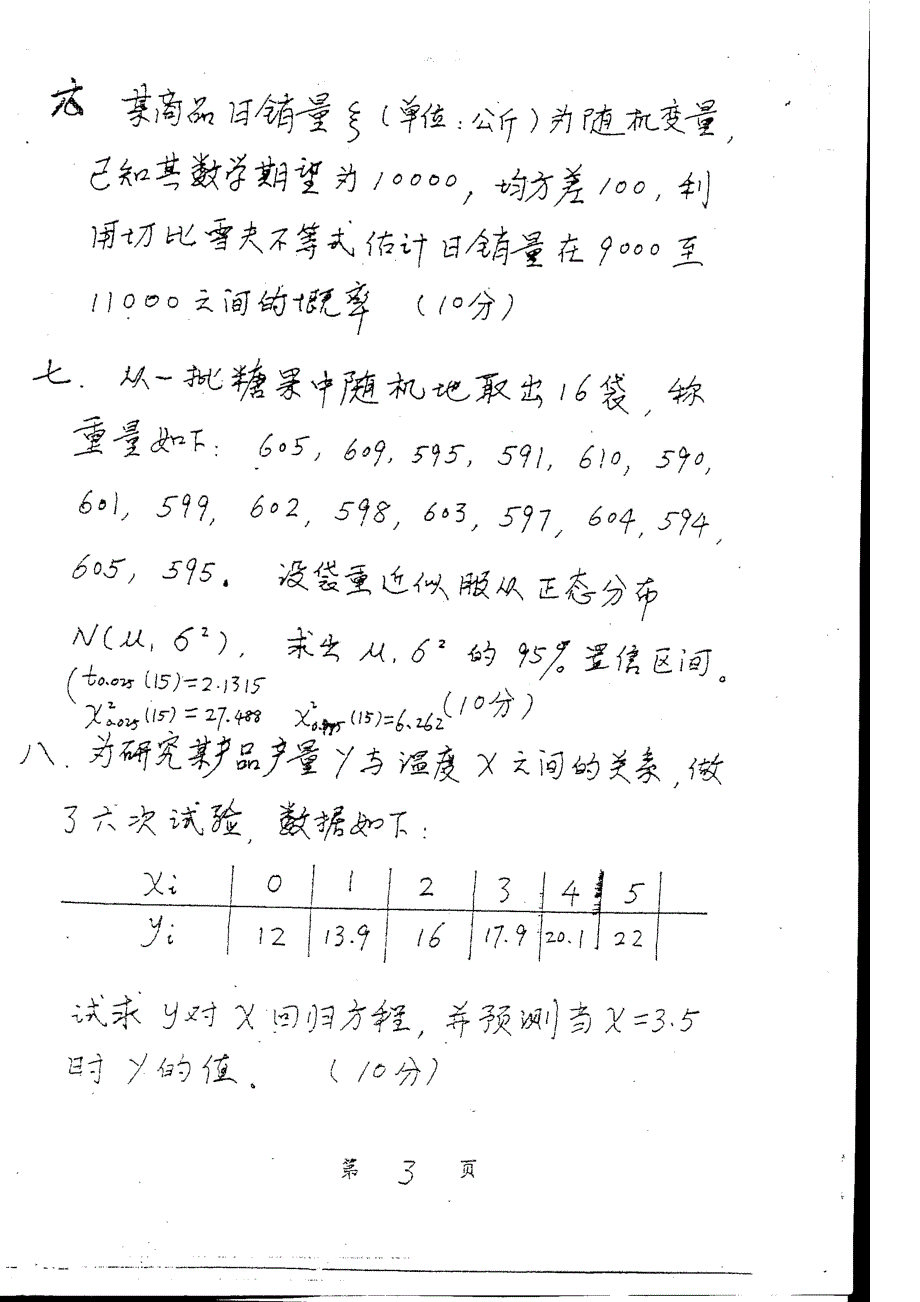 六 某商品日销量ξ(单位:公斤)为随机变量,
已知其数学期望为10000,均方差100,利
用切比雪夫不等式估计日销量在9000至
11000之间的概率 (10分)
七. 从一批糖果中随机地取出16袋,称
重量如下: 605, 609, 595, 591, 610, 590,
601, 599, 602, 598, 603, 597, 604, 594,
605, 595。 设袋重近似服从正态分布
N(μ, σ²), 求出 μ, σ² 的 95% 置信区间。
(t0.025(15)=2.1315
χ²0.025(15)=27.488 χ²0.975(15)=6.262 (10分)
八. 为研究某产品产量Y与温度X之间的关系,做
了六次试验, 数据如下:
xi 0 1 2 3 4 5
yi 12 13.9 16 17.9 20.1 22
试求 y对X回归方程, 并预测当X=3.5
时Y的值。 (10分)
第 3 页